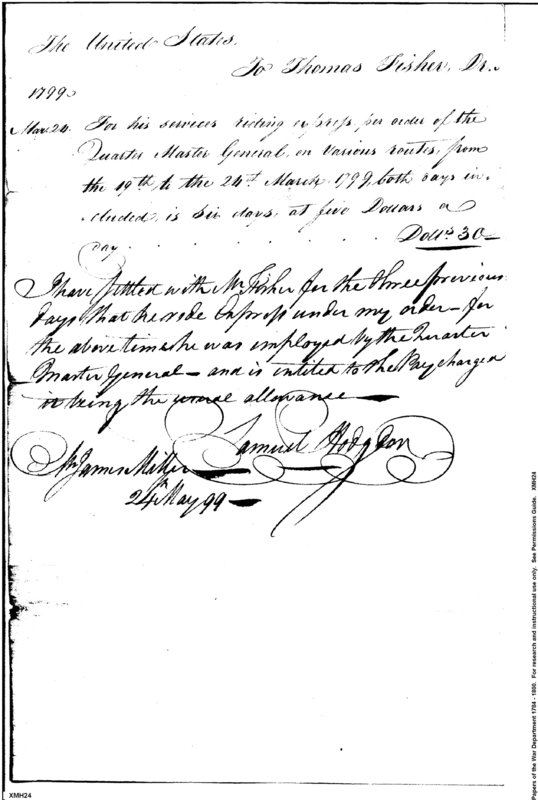 The United States,
To Thomas Fisher, Dr.
1799.
Mar. 24. For his services riding express per order of the
Quarter Master General, on various routes, from
the 19th to the 24th March 1799, both days in-
cluded, is six days, at five Dollars a
day . . . . . . Dolls 30—
I have settled with Mr Fisher for the three previous
days that he rode Express under my order — for
the above time he was employed by the Quarter
Master General — and is entitled to the Pay charged
it being the usual allowance —
Samuel Hodgdon
Mr James Miller
24th May 99 —
XMH24
Papers of the War Department 1784 - 1800. For research and instructional use only. See Permissions Guide. XMH24